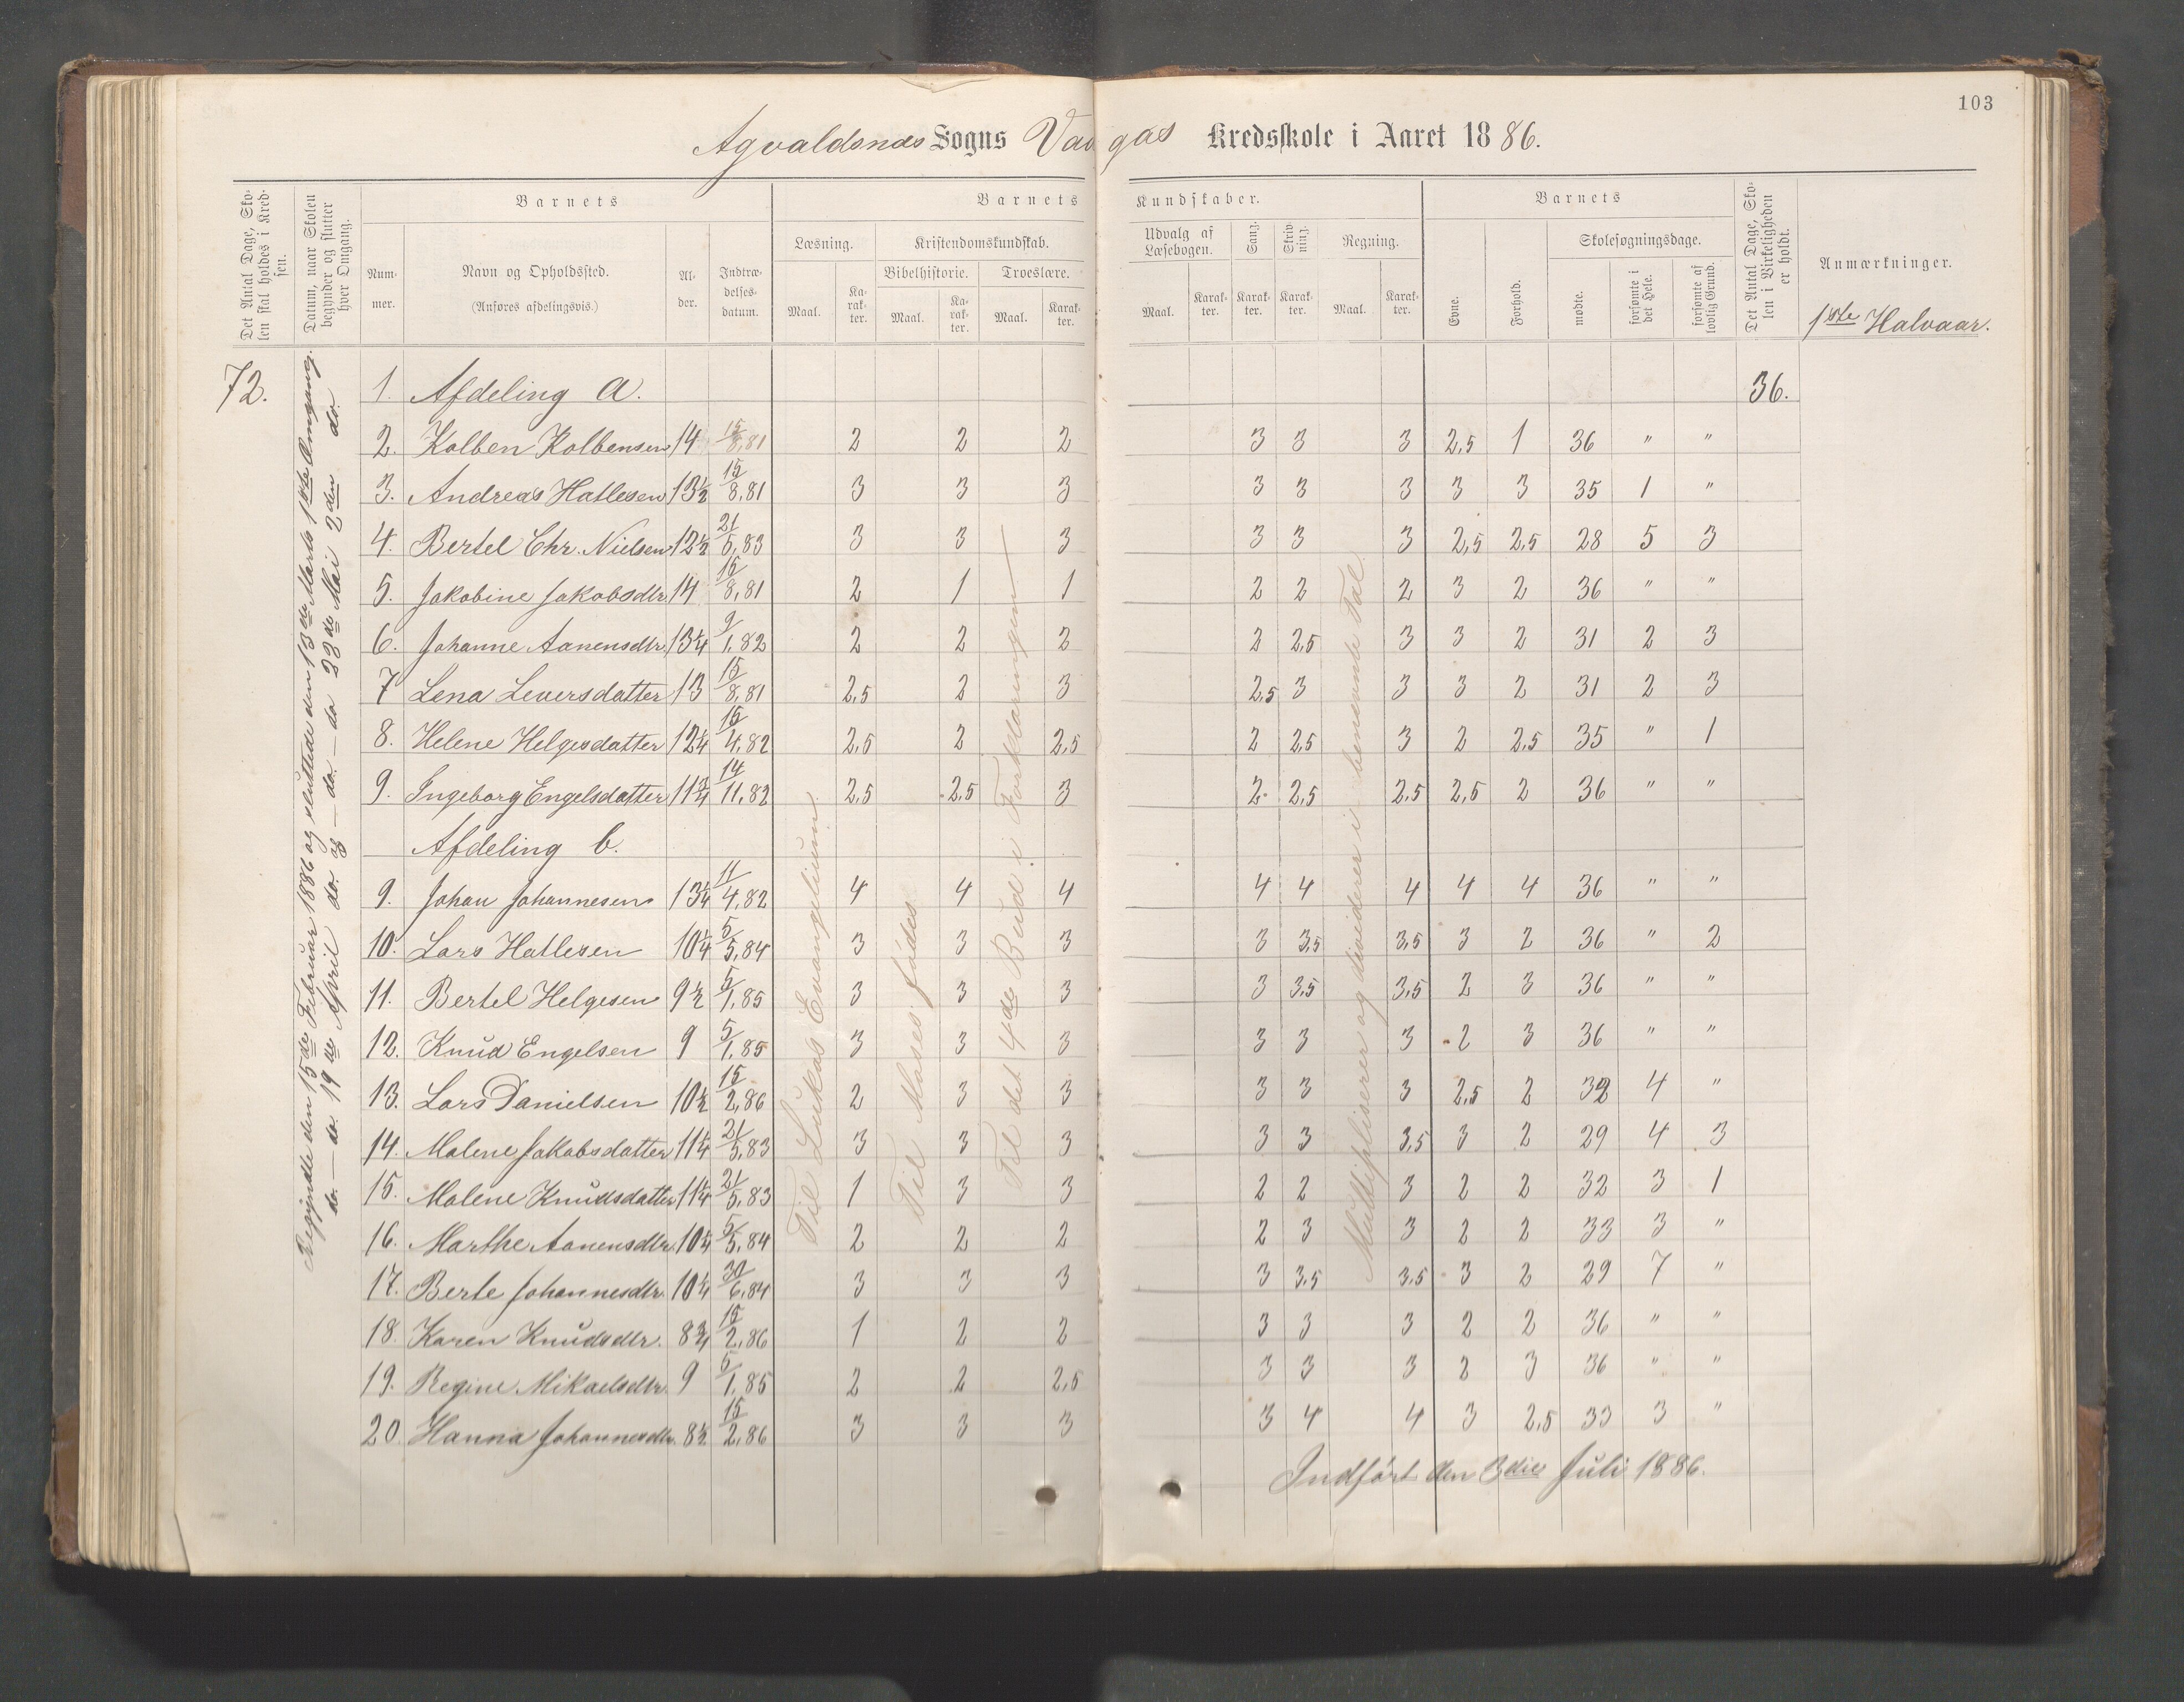 103
Agvaldsnas Sogns Vaagas Kredsskole i Aaret 1886.
Det Antal Dage, Skolen skal holdes i Kredsen.
Datum, naar Skolen begynder og slutter hver Omgang.
Barnets
Nummer.
Navn og Opholdssted.
(Anføres afdelingsvis.)
Alder.
Indtrædelses-datum.
Barnets Kundskaber.
Læsning.
Maal.
Karakter.
Kristendomskundskab.
Bibelhistorie.
Maal.
Karakter.
Troeslære.
Maal.
Karakter.
Udvalg af Læsebogen.
Maal.
Karakter.
Sang.
Karakter.
Skrivning.
Karakter.
Regning.
Maal.
Karakter.
Barnets
Evne.
Forhold.
Skolesøgningsdage.
mødte.
forsømte i det Hele.
forsømte af lovlig Grund.
Det Antal Dage, Skolen i Virkeligheden er holdt.
Anmærkninger.
1ste Halvaar.
72.
Begyndte den 15de Februar 1886 og sluttede den 13de Marts 1ste Omgang.
do. — do. 19de April do. og — do. — do 22de Mai 2den do.
Til Lukas Evangelium.
Til Moses fødes.
Til det 4de Bud i Forklaringen
Multipliserer og dividerer i benævnte Tal.
1. Afdeling a. 36.
2. Kolben Kolbensen 14 15/8,81 2 2 2 3 3 3 2,5 1 36 " "
3. Andreas Hatlesen 13½ 15/8,81 3 3 3 3 3 3 3 3 35 1 "
4. Bertel Chr. Nielsen 12½ 21/5,83 3 3 3 3 3 3 2,5 2,5 28 5 3
5. Jakobine Jakobsdtr. 14 15/8,81 2 1 1 2 2 2 3 2 36 " "
6. Johanne Aanensdtr. 13¼ 9/1,82 2 2 2 2 2,5 3 3 2 31 2 3
7 Lena Leversdatter 13 15/8,81 2,5 2 3 2,5 3 3 3 2 31 2 3
8. Helene Helgesdatter 12¼ 15/4,82 2,5 2 2,5 2 2,5 3 2 2,5 35 " 1
9. Ingeborg Engelsdatter 11¾ 14/11,82 2,5 2,5 3 2 2,5 2,5 2,5 2 36 " "
Afdeling b.
9. Johan Johannesen 13¼ 11/4,82 4 4 4 4 4 4 4 4 36 " "
10. Lars Hatlesen 10¼ 5/5,84 3 3 3 3 3,5 3,5 3 2 36 " 2
11. Bertel Helgesen 9½ 5/1,85 3 3 3 3 3,5 3,5 2 3 36 " "
12. Knud Engelsen 9 5/1,85 3 3 3 3 3 3 2 3 36 " "
13. Lars Danielsen 10½ 15/2,86 2 3 3 3 3 3 2,5 2 32 4 "
14. Malene Jakobsdatter 11¼ 21/5,83 3 3 3 3 3 3,5 3 2 29 4 3
15. Malene Knudsdatter 11¼ 21/5,83 1 3 3 2 2 3 2 2 32 3 1
16. Marthe Aanensdtr. 10¼ 5/5,84 2 2 2 2 3 3 2 2 33 3 "
17. Berte Johannesdtr. 10¼ 30/6,84 3 3 3 3 3,5 3,5 3 2 29 7 "
18. Karen Knudsdtr. 8¾ 15/2,86 1 2 2 3 3 3 2 2 36 " "
19. Regine Mikaelsdtr. 9 5/1,85 2 2 2,5 3 3 3 2 3 36 " "
20. Hanna Johannesdtr. 8½ 15/2,86 3 3 3 3 4 4 3 2,5 33 3 "
Indført den 3die Juli 1886.